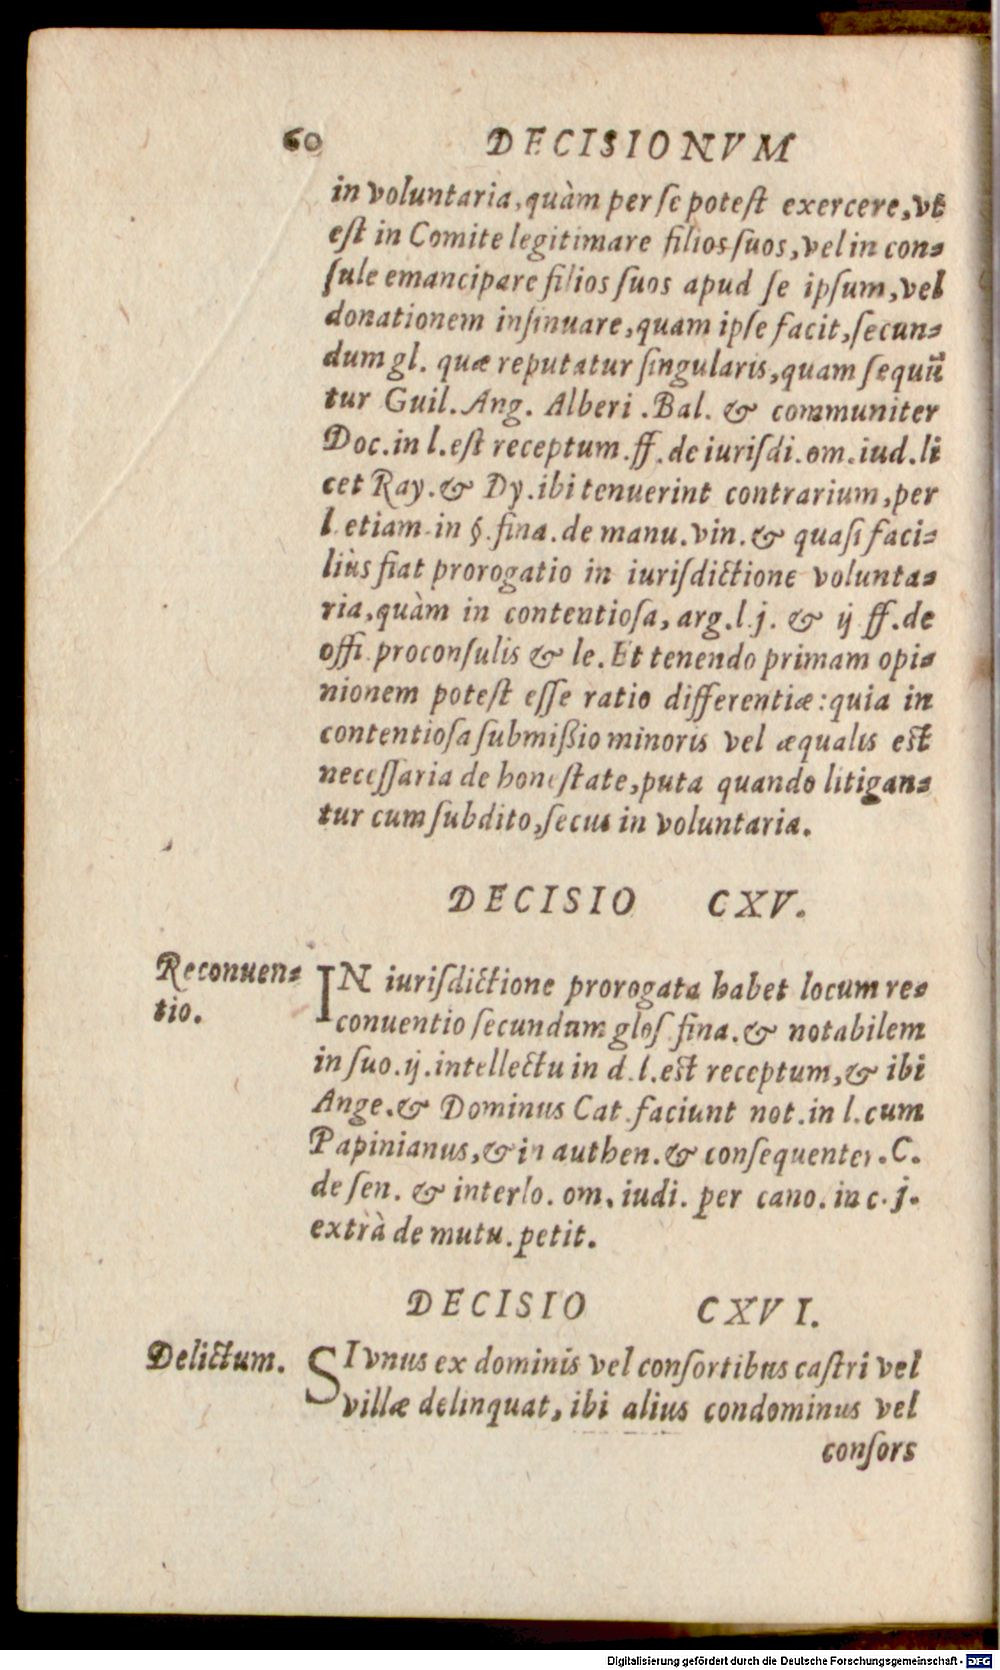 60 DECISIONVM
in voluntaria, quàm per se potest exercere, vt
est in Comite legitimare filios suos, vel in con=
sule emancipare filios suos apud se ipsum, vel
donationem insinuare, quam ipse facit, secun=
dum gl. quæ reputatur singularis, quam sequū
tur Guil. Ang. Alberi. Bal. & communiter
Doc. in l. est receptum. ff. de iurisdi. om. iud. li
cet Ray. & Dy. ibi tenuerint contrarium, per
l etiam in §. fina. de manu. vin. & quasi faci=
liùs fiat prorogatio in iurisdictione volunta=
ria, quàm in contentiosa, arg. l. j. & ij ff. de
offi. proconsulis & le. Et tenendo primam opi=
nionem potest esse ratio differentiæ: quia in
contentiosa submißio minoris vel æqualis est
necessaria de honestate, puta quando litigan=
tur cum subdito, secus in voluntaria.
DECISIO CXV.
Reconuen=
tio.
IN iurisdictione prorogata habet locum re=
conuentio secundum glos. fina. & notabilem
in suo. ij. intellectu in d. l. est receptum, & ibi
Ange. & Dominus Cat. faciunt not. in l. cum
Papinianus, & in authen. & consequenter. C.
de sen. & interlo. om. iudi. per cano. in c. j.
extrà de mutu. petit.
DECISIO CXVI.
Delictum.
SI vnus ex dominis vel consortibus castri vel
villæ delinquat, ibi alius condominus vel
consors
Digitalisierung gefördert durch die Deutsche Forschungsgemeinschaft - DFG